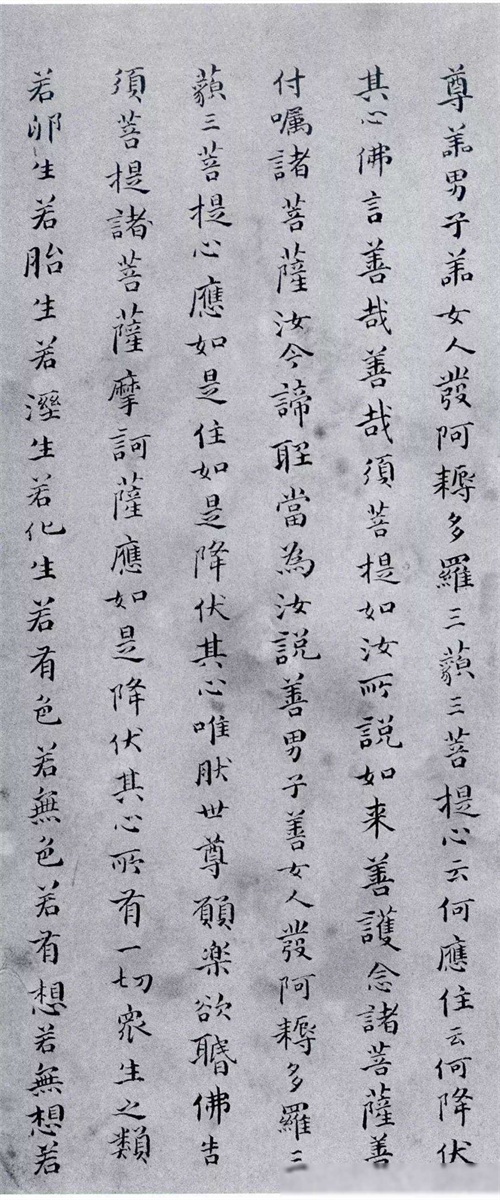 尊善男子善女人發阿耨多羅三藐三菩提心云何應住云何降伏
其心佛言善哉善哉須菩提如汝所説如来善護念諸菩薩善
付囑諸菩薩汝今諦聽當為汝説善男子善女人發阿耨多羅三
藐三菩提心應如是住如是降伏其心唯然世尊願樂欲聞佛告
須菩提諸菩薩摩訶薩應如是降伏其心所有一切衆生之類
若卵生若胎生若溼生若化生若有色若無色若有想若無想若